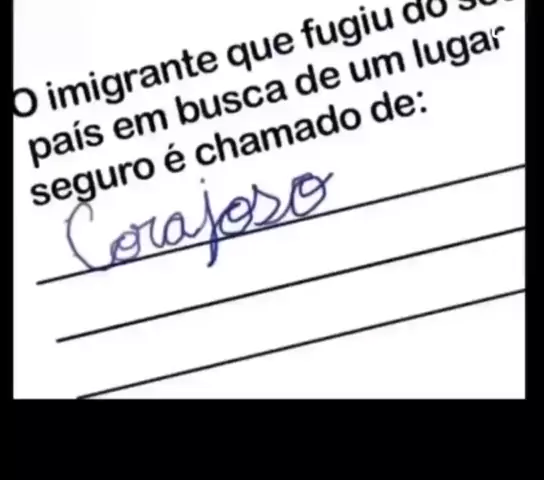 O imigrante que fugiu do
país em busca de um lugar
seguro é chamado de:
Corajoso